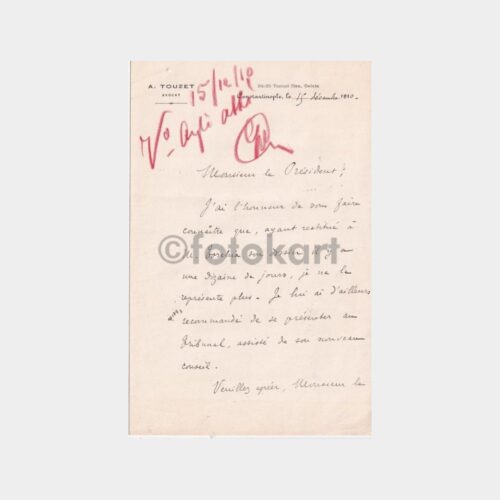 A. TOUZET
AVOCAT
Constantinople, le 15 décembre 1910.
15/12/10
Monsieur le Président,
J'ai l'honneur de vous faire
connaître que, ayant restitué à
M. son dossier il y a
©fotokart
une dizaine de jours, je ne le
représente plus. Je lui ai d'ailleurs
recommandé de se présenter au
Tribunal, assisté de son nouveau
conseil.
Veuillez agréer, Monsieur le